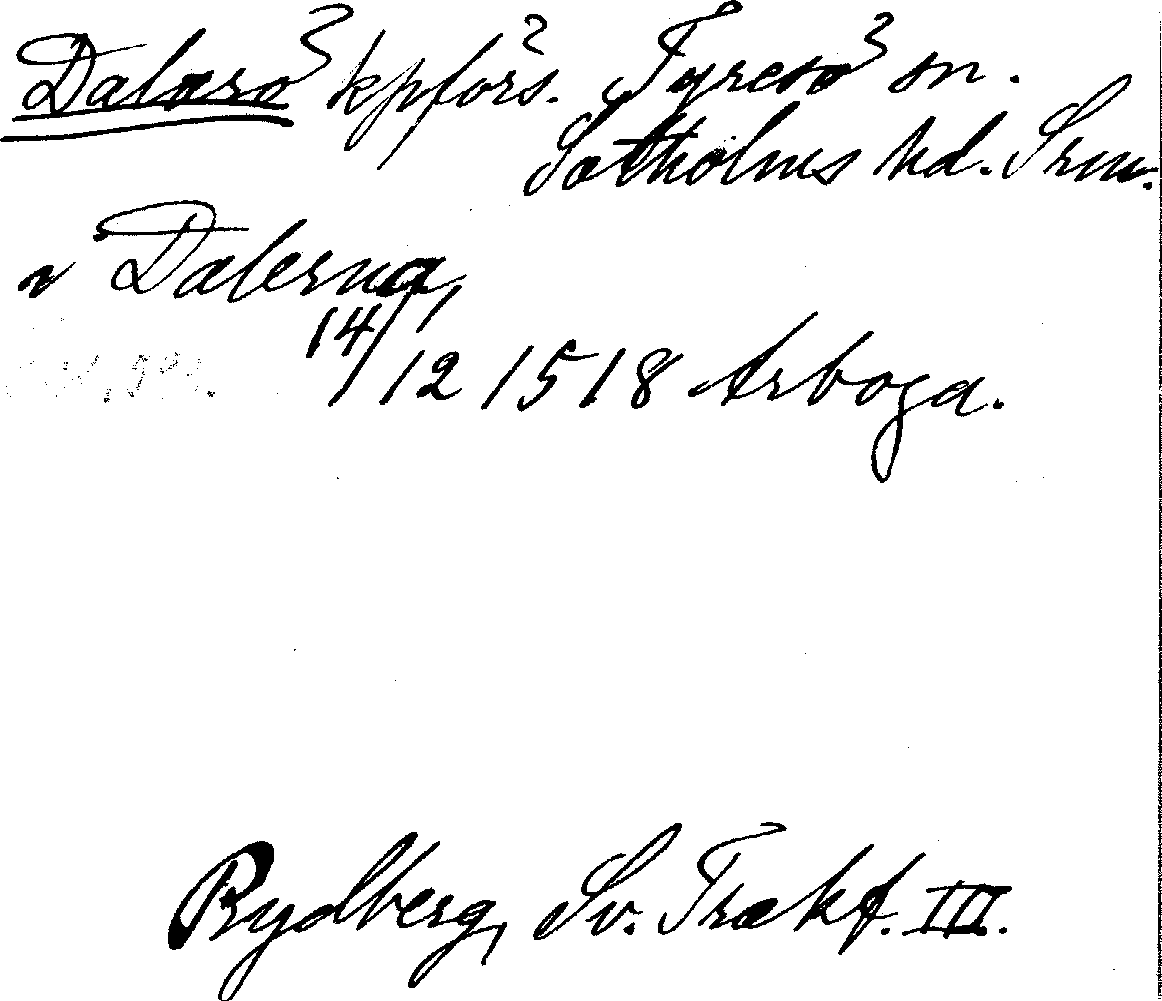 Dalarö kpförs. Tyresö sn.
Sotholms hd. Srm.
v Dalerna,
14/12 1518 Arboga.
Rydberg, Sv. Trakt. III.